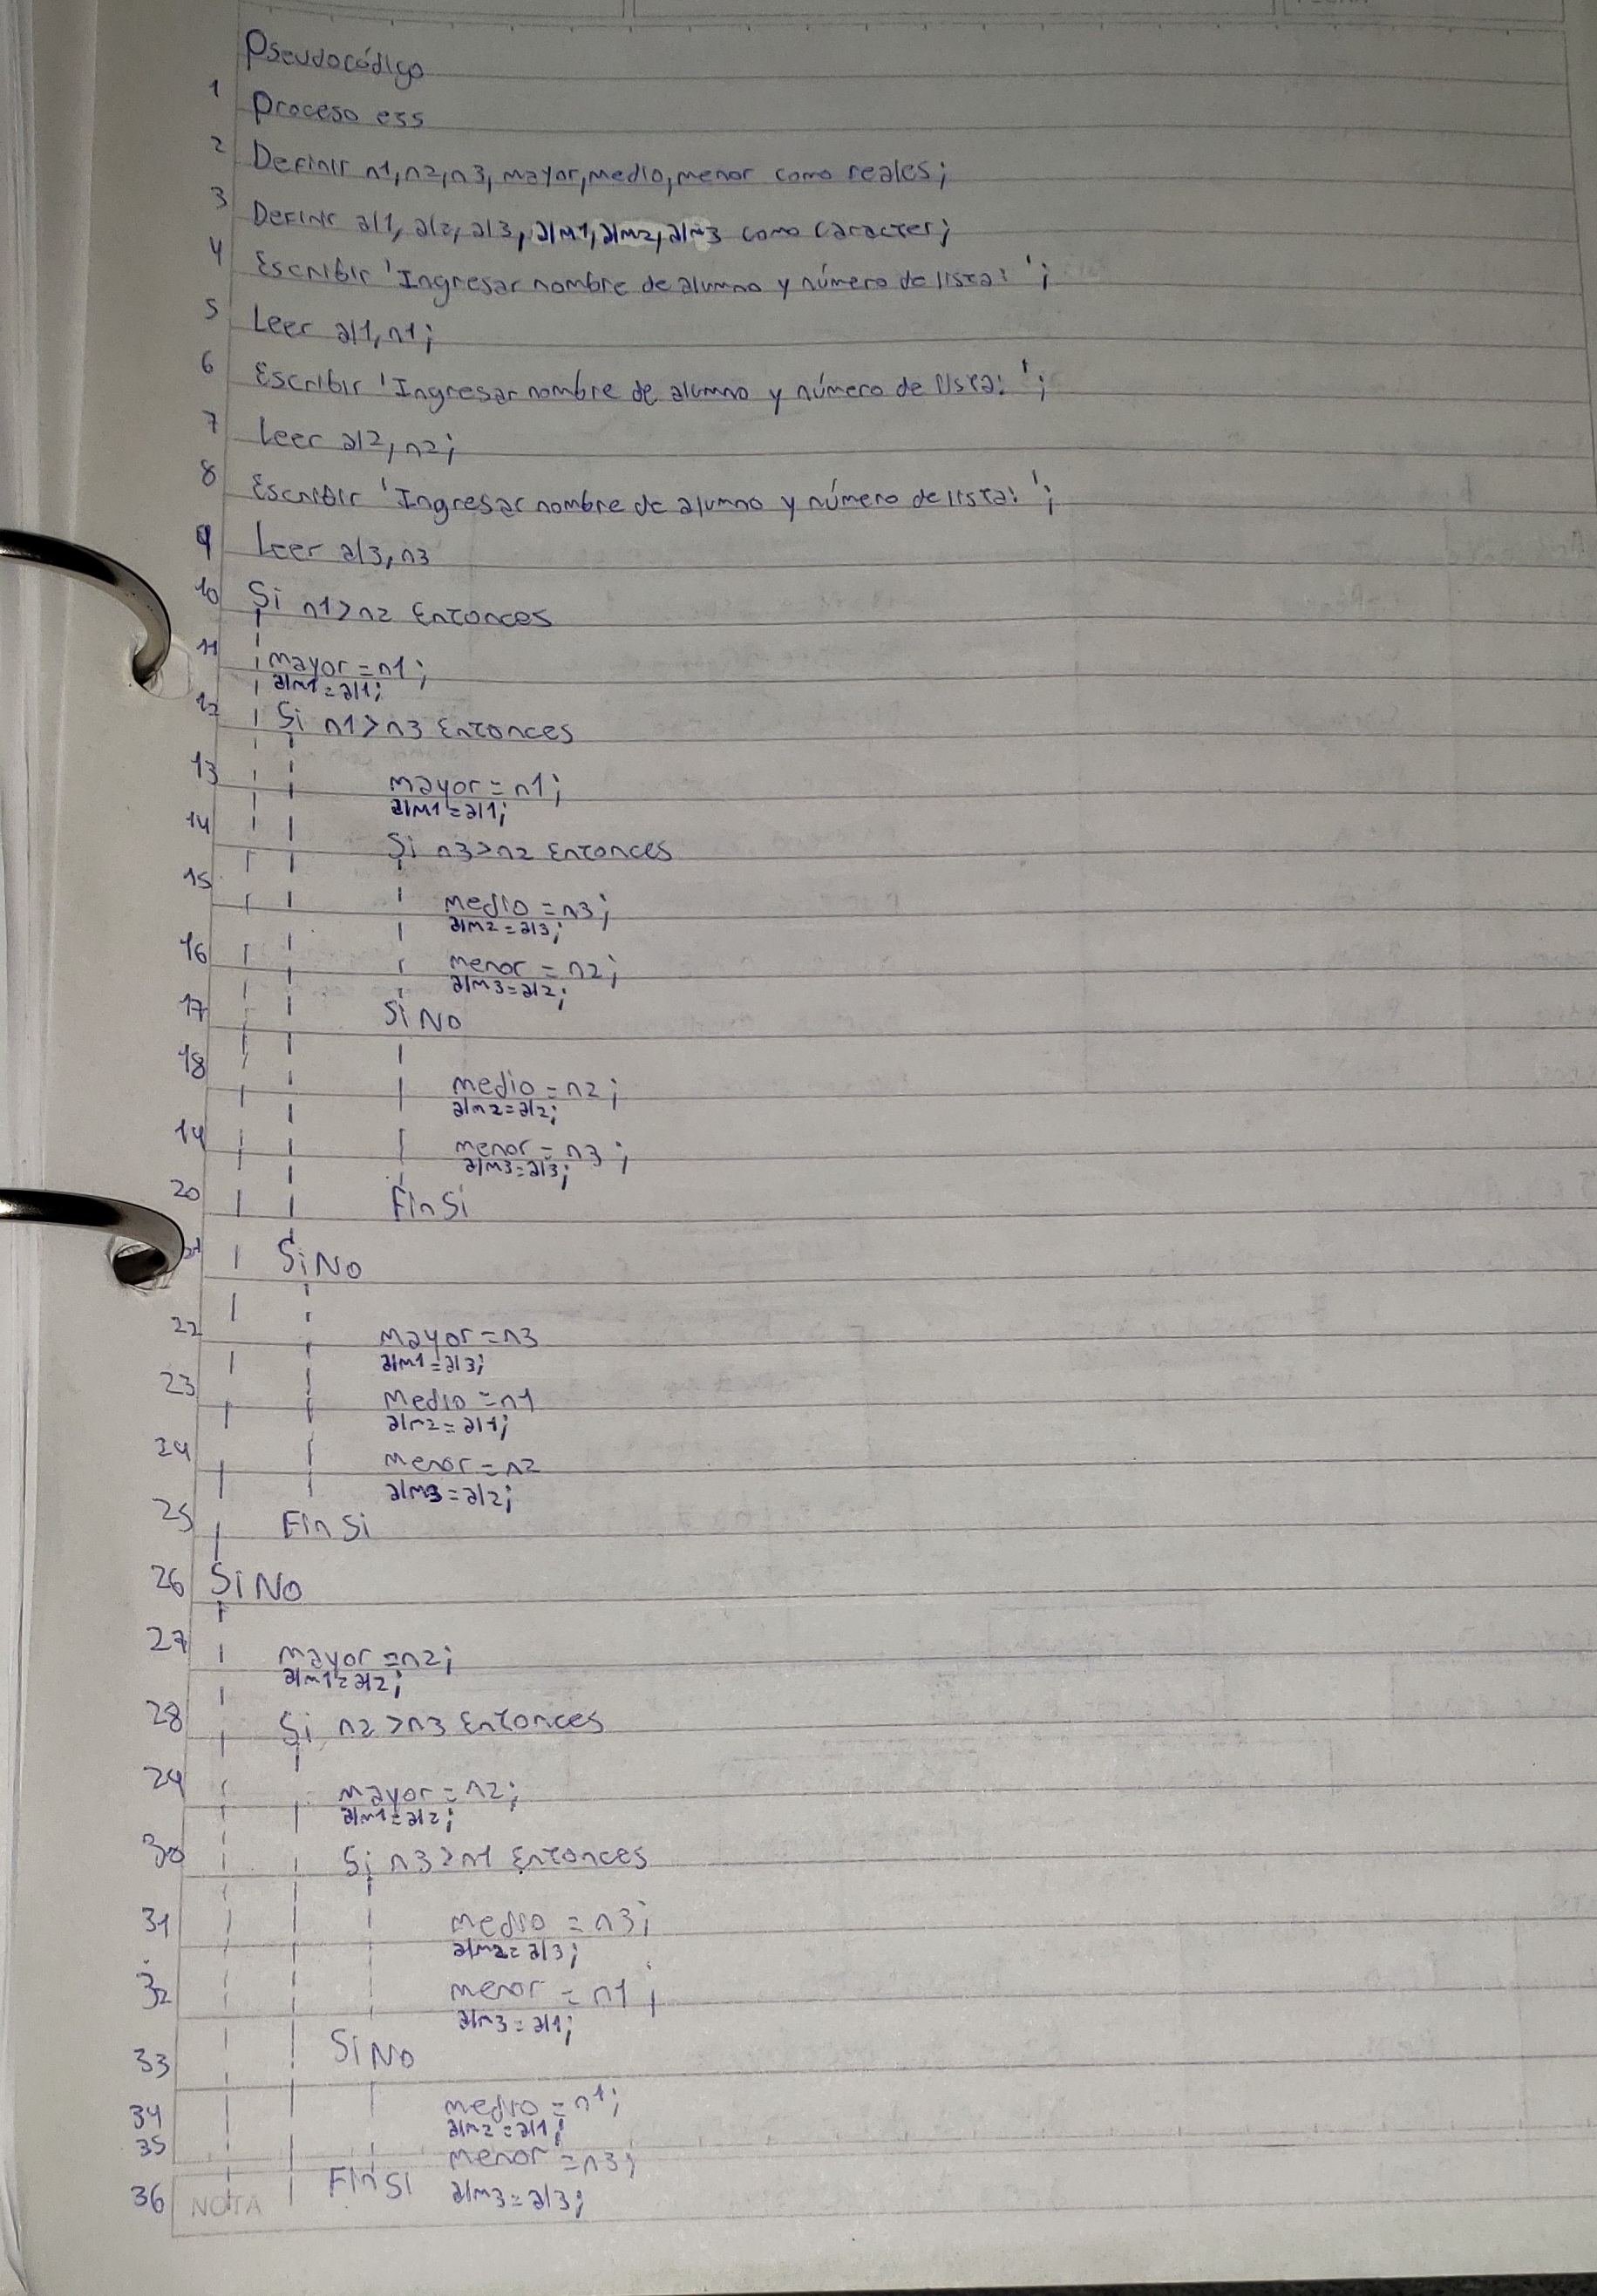 Pseudocódigo
1 Proceso ess
2 Definir n1,n2,n3,mayor,medio,menor como reales;
3 Definir al1, al2, al3, alm1, alm2, alm3 como caracter;
4 Escribir 'Ingresar nombre de alumno y número de lista: ';
5 Leer al1,n1;
6 Escribir 'Ingresar nombre de alumno y número de lista: ';
7 Leer al2,n2;
8 Escribir 'Ingresar nombre de alumno y número de lista: ';
9 Leer al3,n3
10 Si n1>n2 Entonces
11 mayor=n1;
alm1=al1;
12 Si n1>n3 Entonces
13 mayor=n1;
alm1=al1;
14 Si n3>n2 Entonces
15 medio=n3;
alm2=al3;
16 menor=n2;
alm3=al2;
17 SiNo
18 medio=n2;
alm2=al2;
19 menor=n3;
alm3=al3;
20 FinSi
21 SiNo
22 mayor=n3
alm1=al3;
23 Medio=n1
alm2=al1;
24 menor=n2
alm3=al2;
25 FinSi
26 SiNo
27 mayor=n2;
alm1=al2;
28 Si n2>n3 Entonces
29 mayor=n2;
alm1=al2;
30 Si n3>n1 Entonces
31 medio=n3;
alm2=al3;
32 menor=n1;
alm3=al1;
33 SiNo
34 medio=n1;
alm2=al1;
35 menor=n3;
36 FinSi alm3=al3;
NOTA